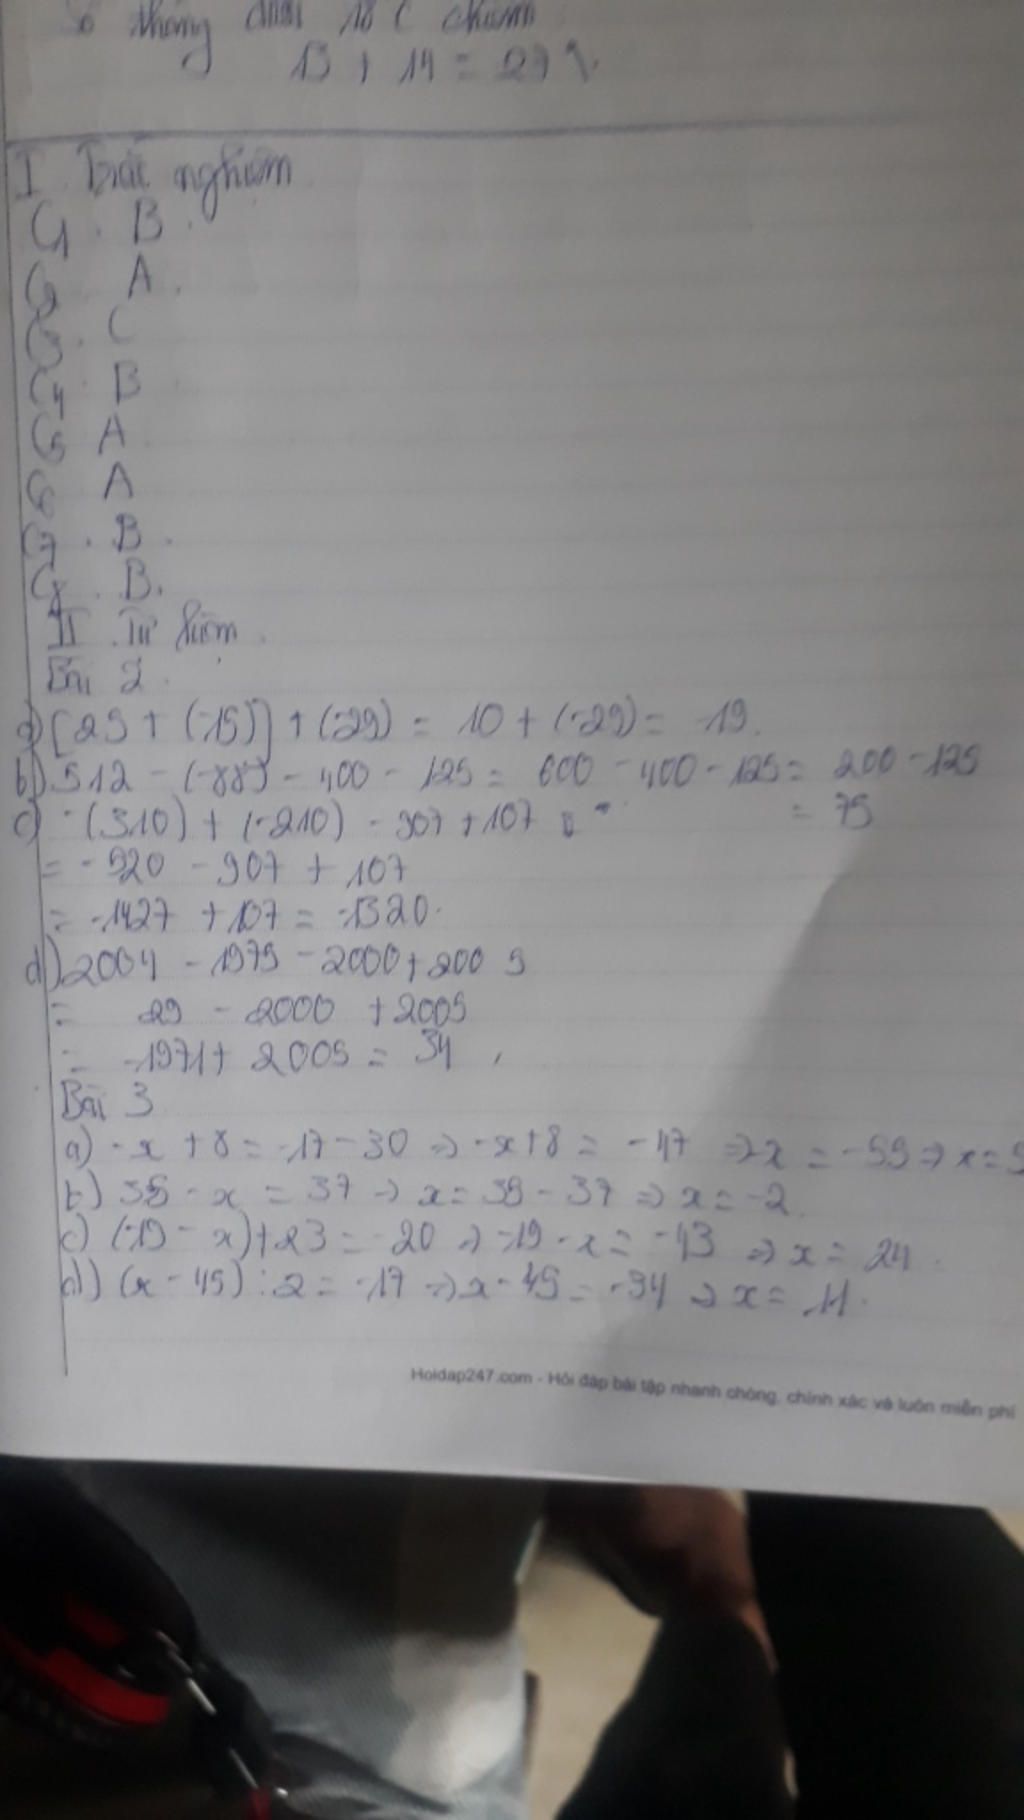 Số tháng dưới 18°C chiếm
13 + 14 = 27%
I. Trắc nghiệm
C1. B.
C2. A.
C3. C
C4. B
C5 A
C6 A
C7. B.
C8. B.
II. Tự luận.
Bài 2.
a) [25 + (-15)] + (-29) = 10 + (-29) = -19.
b) 512 - (-88) - 400 - 125 = 600 - 400 - 125 = 200 - 125
= 75
c) -(310) + (-210) - 907 + 107
= -520 - 907 + 107
= -1427 + 107 = -1320.
d) 2004 - 1975 - 2000 + 2005
= 29 - 2000 + 2005
= -1971 + 2005 = 34
Bài 3
a) -x + 8 = -17 - 30 => -x + 8 = -47 => x = -55 => x =
b) 35 - x = 37 => x = 35 - 37 => x = -2.
c) (-19 - x) + 23 = -20 => -19 - x = -43 => x = 24.
d) (x - 45) : 2 = -17 => x - 45 = -34 => x = 11.
Hoidap247.com - Hỏi đáp bài tập nhanh chóng, chính xác và luôn miễn phí